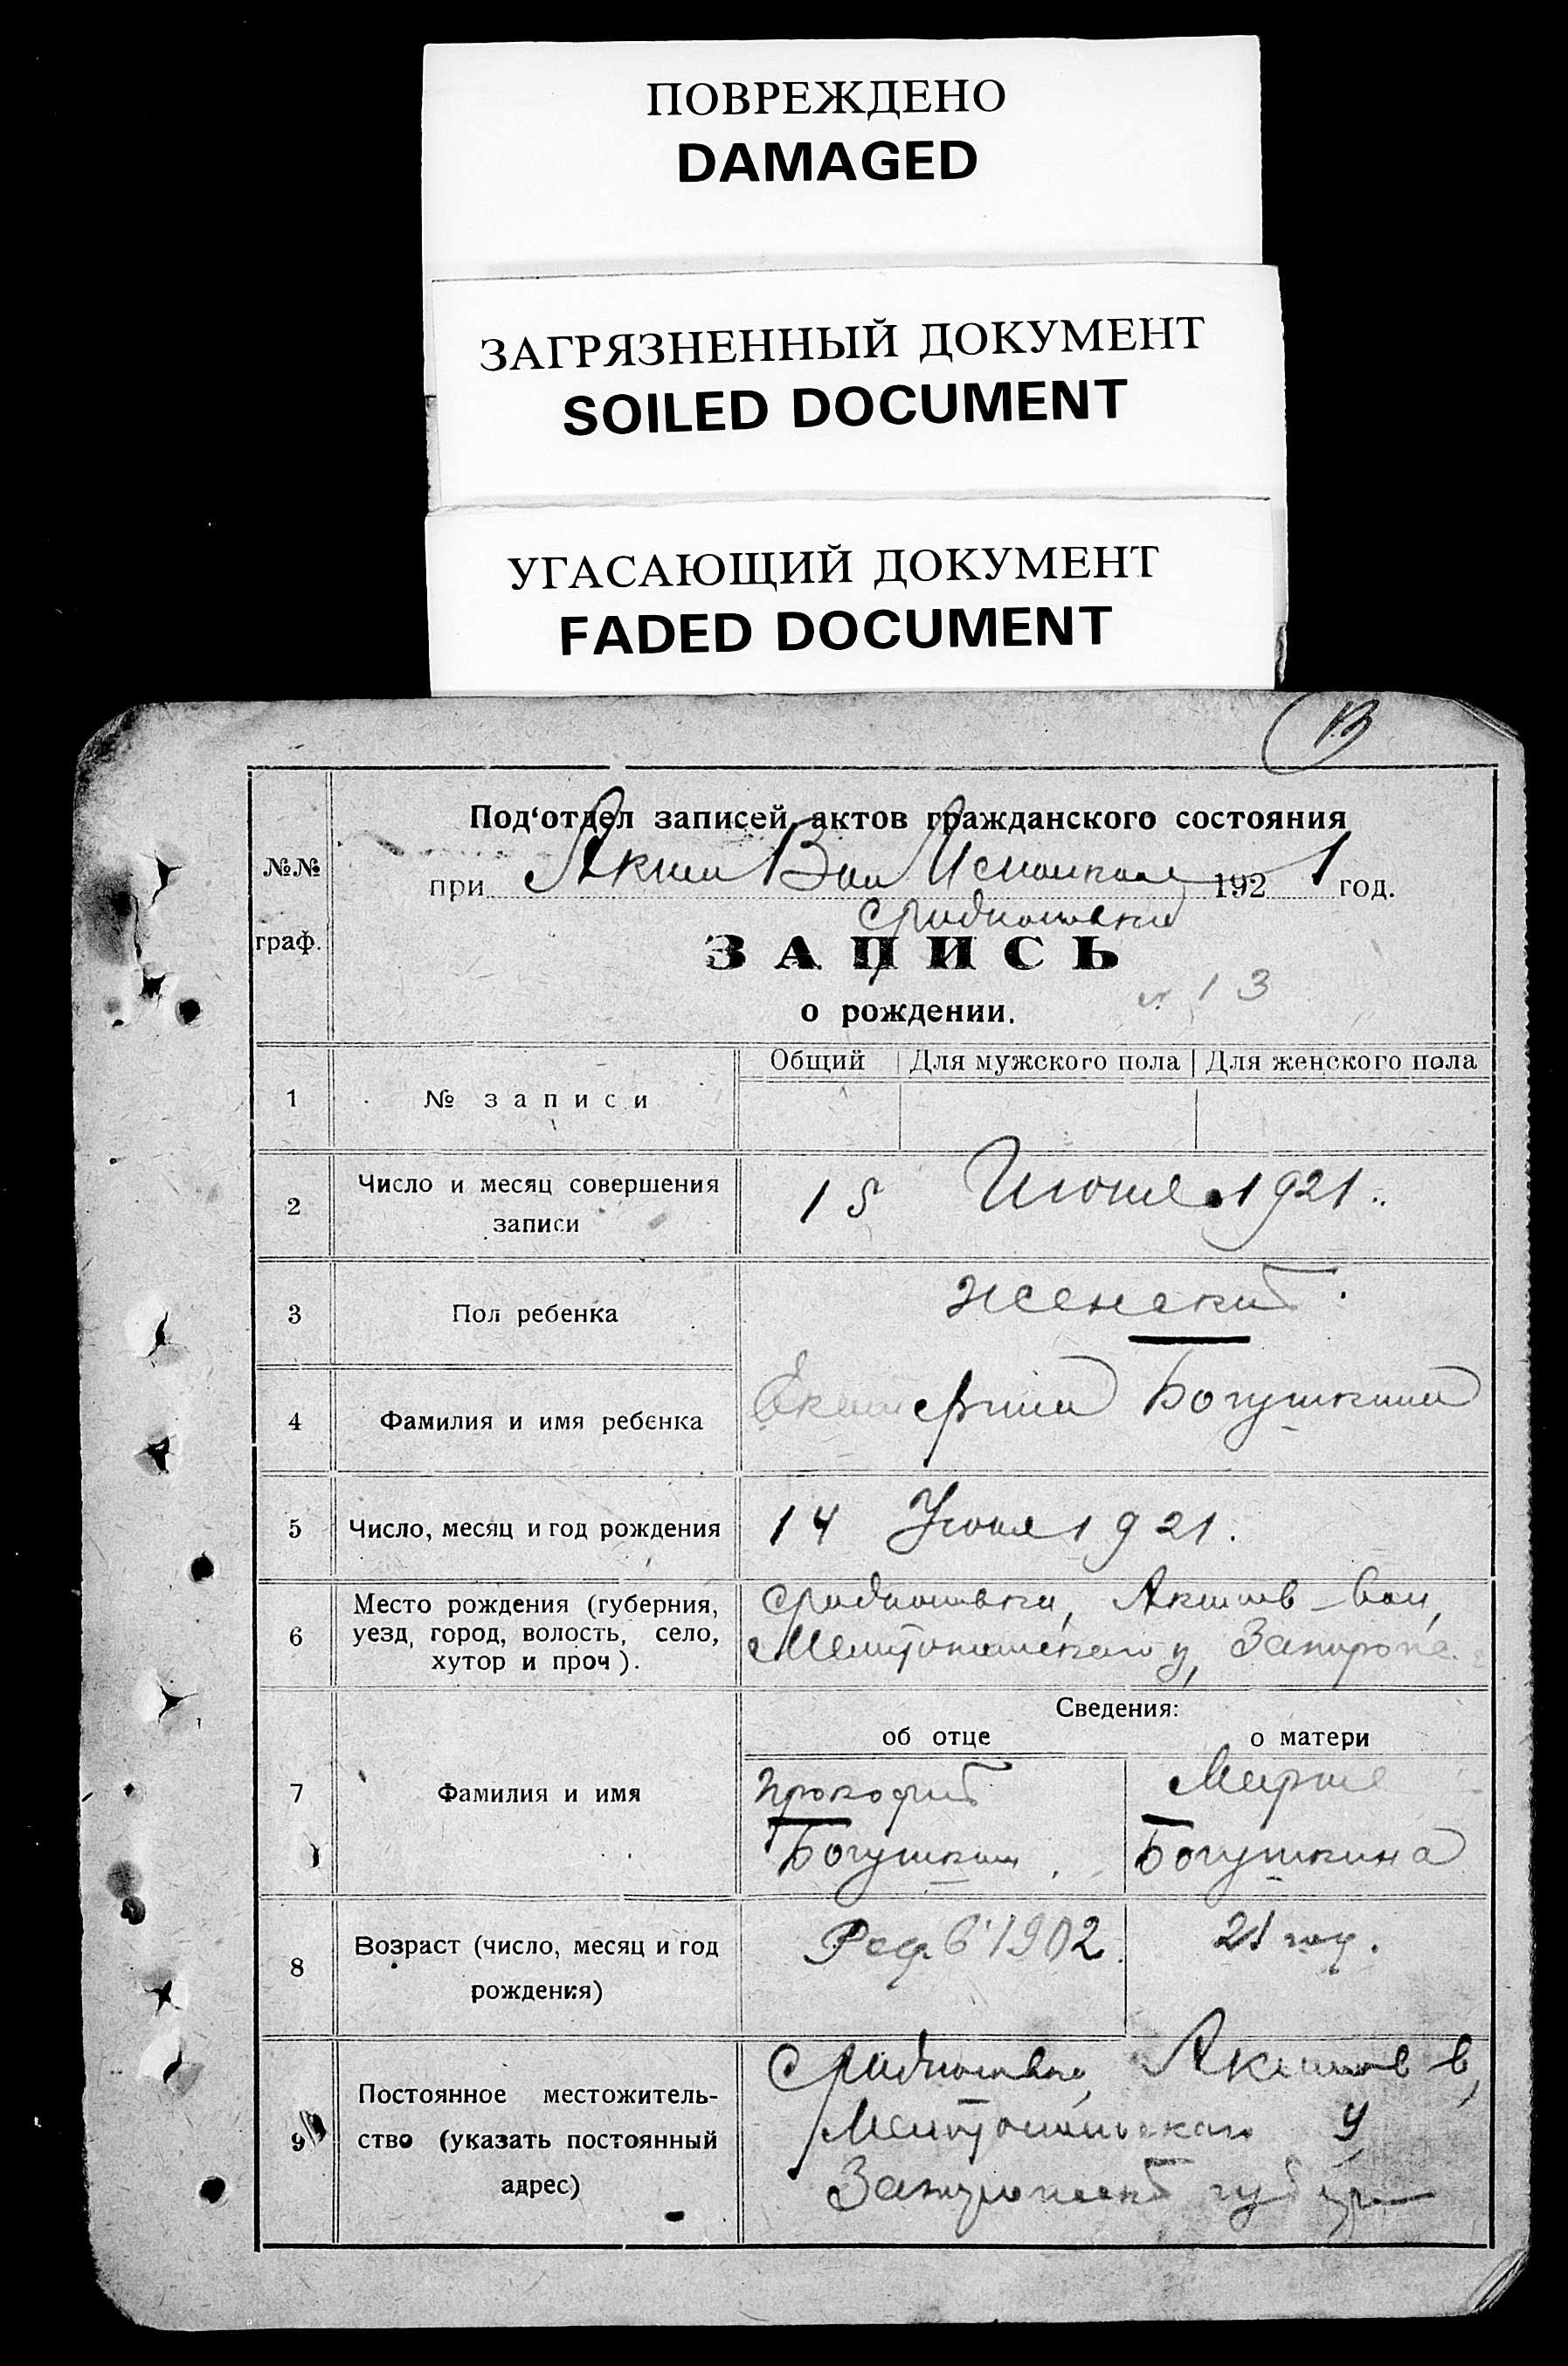 ПОВРЕЖДЕНО
DAMAGED
ЗАГРЯЗНЕННЫЙ ДОКУМЕНТ
SOILED DOCUMENT
УГАСАЮЩИЙ ДОКУМЕНТ
FADED DOCUMENT
13
№№
граф.
Под‘отдел записей актов гражданского состояния
при Аким Вол Исполкоме 1921 год.
ЗАПИСЬ
о рождении.
13
Общий Для мужского пола Для женского пола
1 № записи
2 Число и месяц совершения
записи
15 Июня 1921.
3 Пол ребенка
женский
4 Фамилия и имя ребенка
Екатерина Богушкина
5 Число, месяц и год рождения
14 Июня 1921.
6 Место рождения (губерния,
уезд, город, волость, село,
хутор и проч).
Акимов вол,
Мелитопольского у,
Сведения:
об отце о матери
7 Фамилия и имя
Прокофий Мария
Богушкин Богушкина
8 Возраст (число, месяц и год
рождения)
Род. в 1902 21 год.
9 Постоянное местожитель-
ство (указать постоянный
адрес)
Акимов в,
Мелитопольскаго у
губ